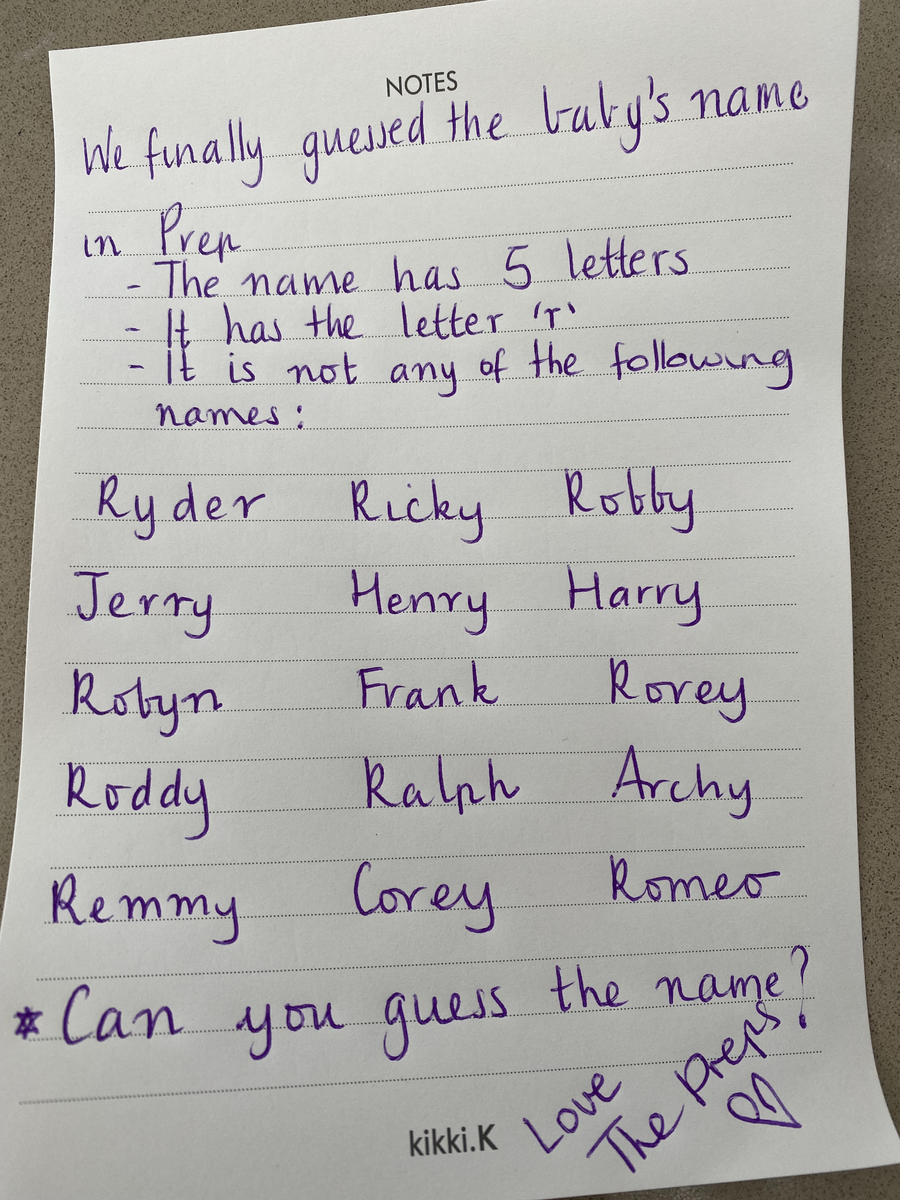 NOTES
We finally guessed the baby's name
in Prep
- The name has 5 letters
- It has the letter 'r'
- It is not any of the following
names:
Ryder Ricky Robby
Jerry Henry Harry
Robyn Frank Rorey
Roddy Ralph Archy
Remmy Corey Romeo
* Can you guess the name?
Love
The Preps
kikki.K